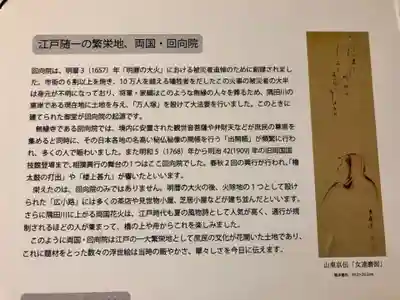 江戸随一の繁栄地、両国・回向院
回向院は、明暦3（1657）年「明暦の大火」における被災者追悼のために創建されまし
た。市街の6割以上を焼き、10万人を越える犠牲者をだしたこの火事の被災者の大半
は身元が不明になっており、将軍・家綱はこのような無縁の人々を葬るため、隅田川の
東岸である現在地に土地を与え、「万人塚」を設けて大法要を行いました。このときに
建てられた御堂が回向院の起源です。
無縁寺である回向院では、境内に安置された観世音菩薩や弁財天などが庶民の尊崇を
集めると同時に、その日本各地の名高い秘仏秘像の開帳を行う「出開帳」が頻繁に行わ
れ、多くの人で賑わいました。また明和5（1768）年から明治42(1909)年の旧両国国
技館登場まで、相撲興行の舞台の1つはここ回向院でした。春秋2回の興行が行われ、「櫓
太鼓の打出」や「櫓上甚九」が響いたといいます。
栄えたのは、回向院のみではありません。明暦の大火の後、火除地の1つとして設け
られた「広小路」には多くの茶店や見世物小屋、芝居小屋などが建ち並んだといいます。
さらに隅田川に上がる両国花火は、江戸時代も夏の風物詩として人気が高く、通行が規
制されるほどの人が集まって、橋の上や舟からこれを楽しみました。
このように両国・回向院は江戸の一大繁栄地として庶民の文化が花開いた土地であり、
これに題材をとった数々の浮世絵は当時の賑やかさ、華々しさを今日に伝えます。
山東京伝「女達磨図」